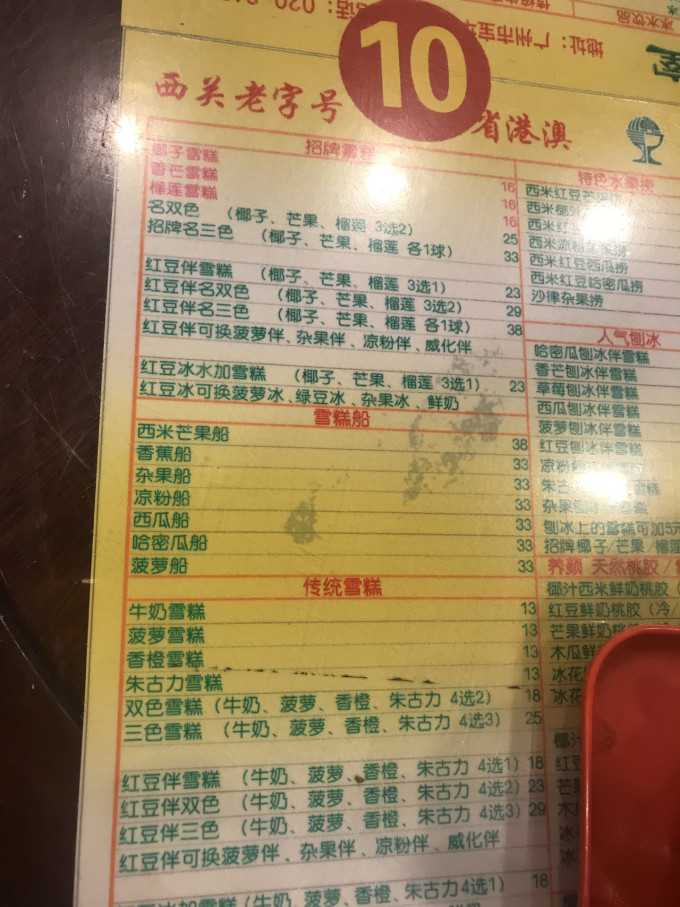 冰水饮品
地址：广州市宝
电话：020
室
10
西关老字号
省港澳
招牌雪糕
椰子雪糕 16
香芒雪糕 16
榴莲雪糕 16
名双色 （椰子、芒果、榴莲 3选2） 25
招牌名三色 （椰子、芒果、榴莲 各1球） 33
红豆伴雪糕 （椰子、芒果、榴莲 3选1） 23
红豆伴名双色 （椰子、芒果、榴莲 3选2） 29
红豆伴名三色 （椰子、芒果、榴莲 各1球） 38
红豆伴可换菠萝伴、杂果伴、凉粉伴、威化伴
红豆冰水加雪糕 （椰子、芒果、榴莲 3选1） 23
红豆冰可换菠萝冰、绿豆冰、杂果冰、鲜奶
雪糕船
西米芒果船 38
香蕉船 33
杂果船 33
凉粉船 33
西瓜船 33
哈密瓜船 33
菠萝船 33
传统雪糕
牛奶雪糕 13
菠萝雪糕 13
香橙雪糕 13
朱古力雪糕 13
双色雪糕（牛奶、菠萝、香橙、朱古力 4选2） 18
三色雪糕（牛奶、菠萝、香橙、朱古力 4选3） 25
红豆伴雪糕 （牛奶、菠萝、香橙、朱古力 4选1） 18
红豆伴双色 （牛奶、菠萝、香橙、朱古力 4选2） 23
红豆伴三色 （牛奶、菠萝、香橙、朱古力 4选3） 29
红豆伴可换菠萝伴、杂果伴、凉粉伴、威化伴
冰加雪糕（牛奶、菠萝、香橙、朱古力4选1） 18
特色水果捞
西米红豆芒
西米椰汁
西米红
西米凉粉
西米红豆西瓜捞
西米红豆哈密瓜捞
沙律杂果捞
人气刨冰
哈密瓜刨冰伴雪糕
香芒刨冰伴雪糕
草莓刨冰伴雪糕
西瓜刨冰伴雪糕
菠萝刨冰伴雪糕
红豆刨冰伴雪糕
凉粉
朱古 雪糕
杂果刨
刨冰上的雪糕可加5元
招牌椰子/芒果/榴莲
养颜 天然桃胶/
椰汁西米鲜奶桃胶（
红豆鲜奶桃胶（冷/
芒果鲜奶桃胶
木瓜鲜
冰花
冰花
椰汁
红豆
芒
木
冰
冰